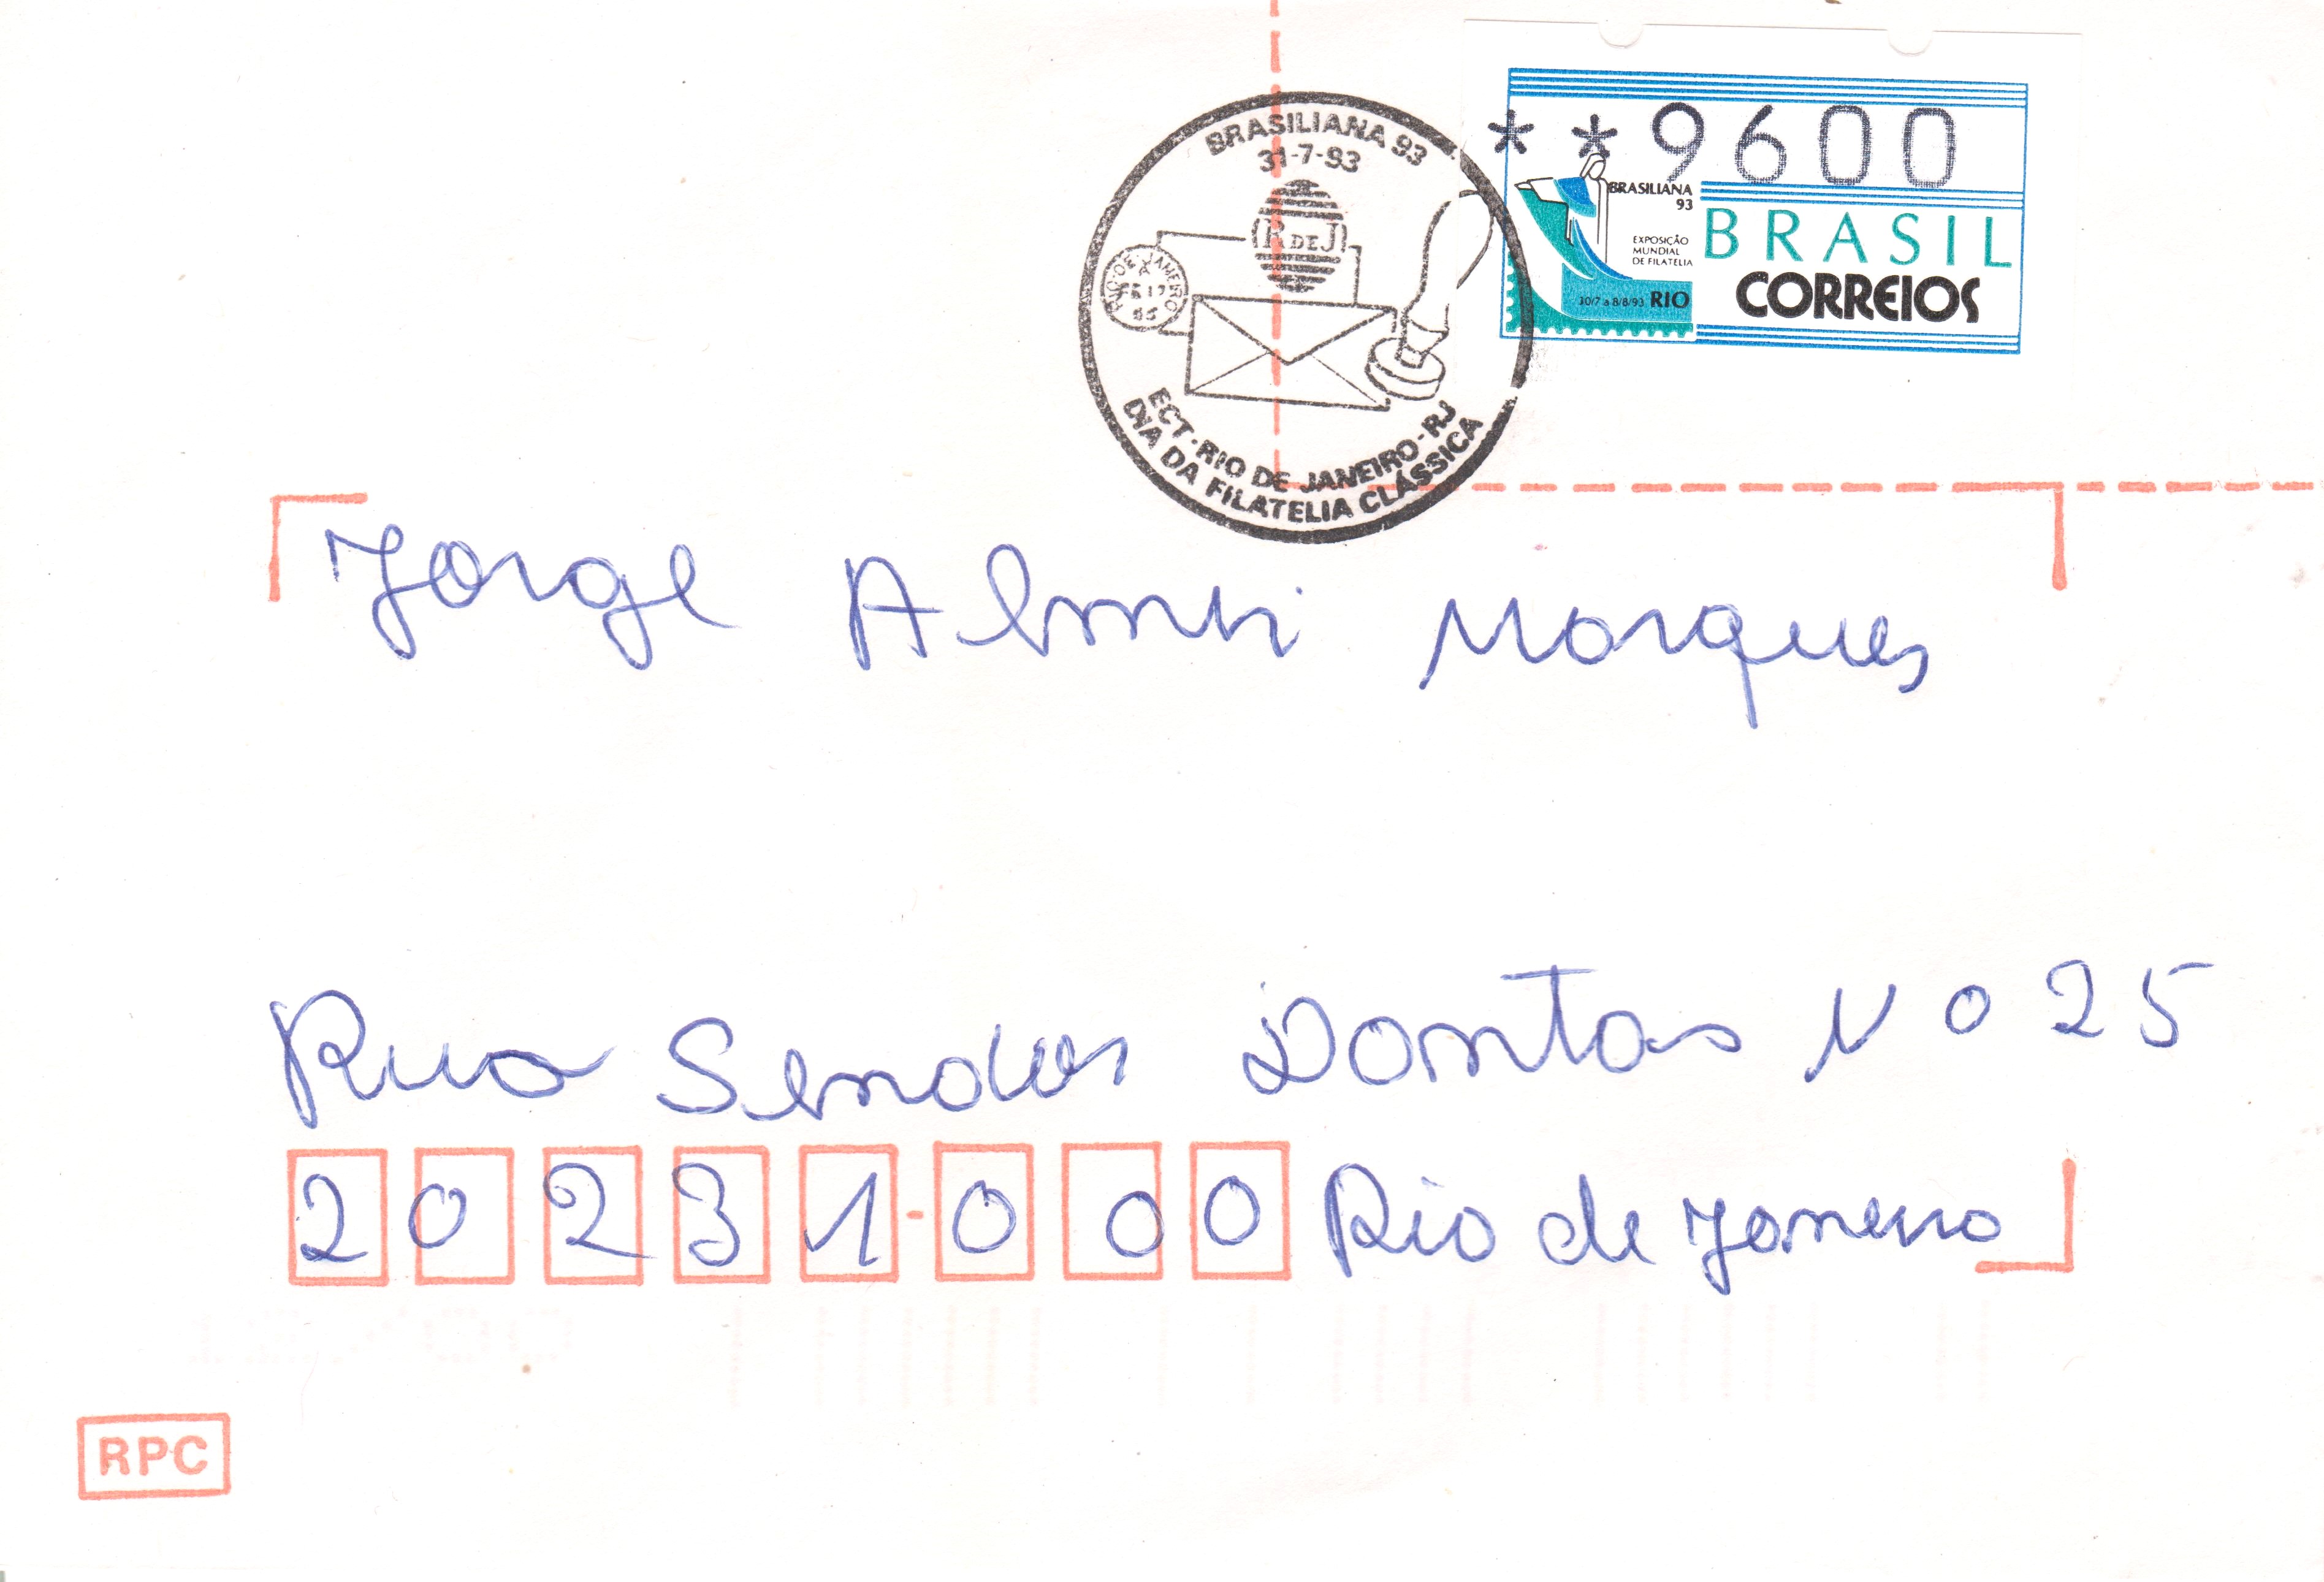 BRASILIANA 93
31-7-93
R DE J
RIO DE JANEIRO
ECT-RIO DE JANEIRO-RJ
DIA DA FILATELIA CLÁSSICA
**9600
BRASILIANA
93
EXPOSIÇÃO
MUNDIAL
DE FILATELIA
30/7 a 8/8/93 RIO
BRASIL
CORREIOS
Jorge Marques
Rua Dantas No 25
20231-000 Rio de Janeiro
RPC